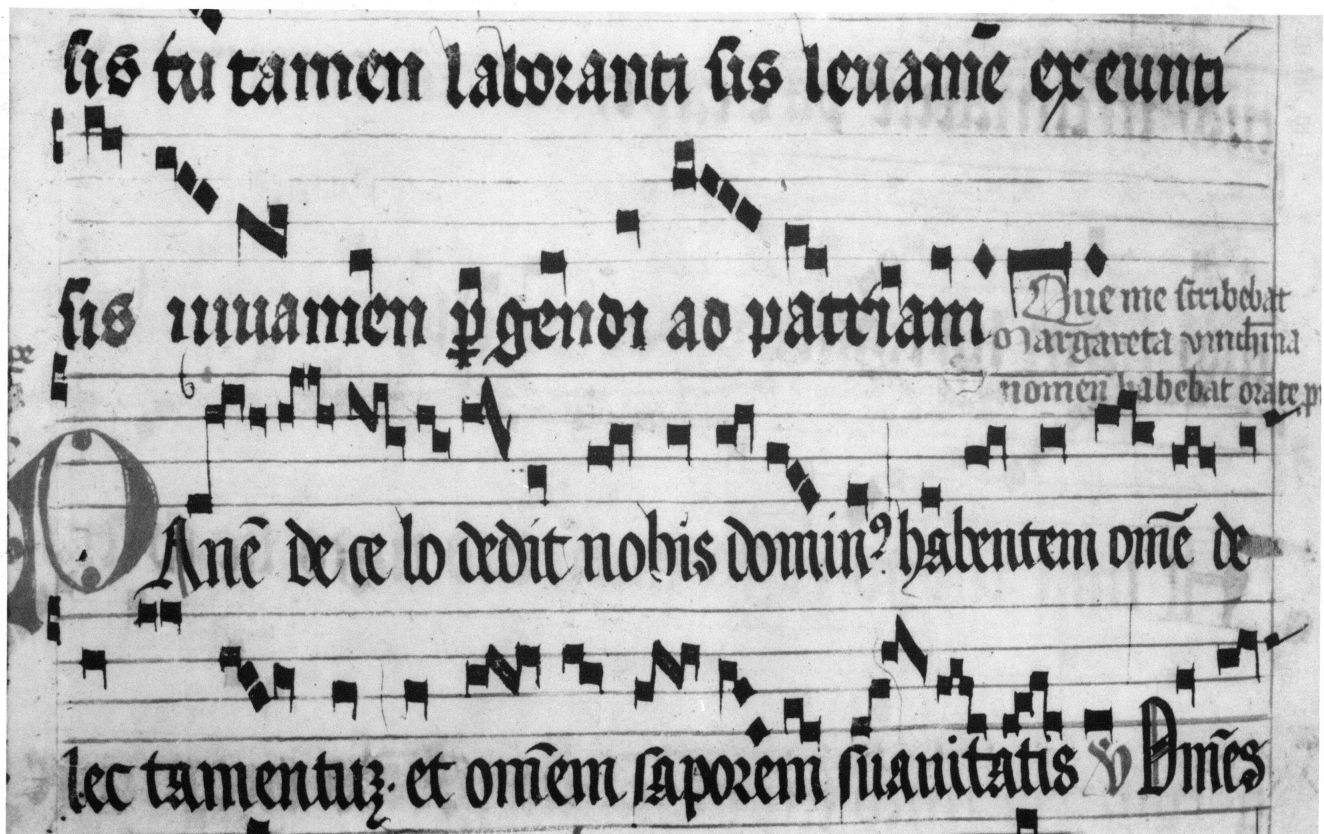 sis tu tamen laboranti sis leuamē exeunti
sis iuuamen p̱gendi ad patriam
Que me scribebat
Margareta
nomen habebat orate p
PAnē de celo dedit nobis domin⁹ habentem om̄e de
lectamentuꝫ· et om̄em saporem suauitatis V Om̄es